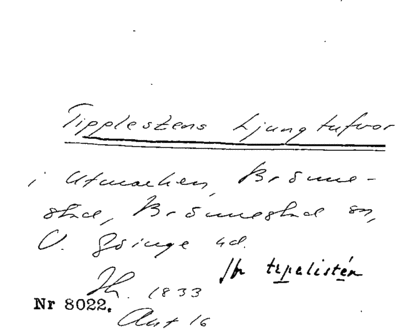 Tipplestens Ljungtufvor
i Utmarken, Brönne-
stad, Brönnestad sn,
V. Göinge hd.
Sk. 1833
Nr 8022.